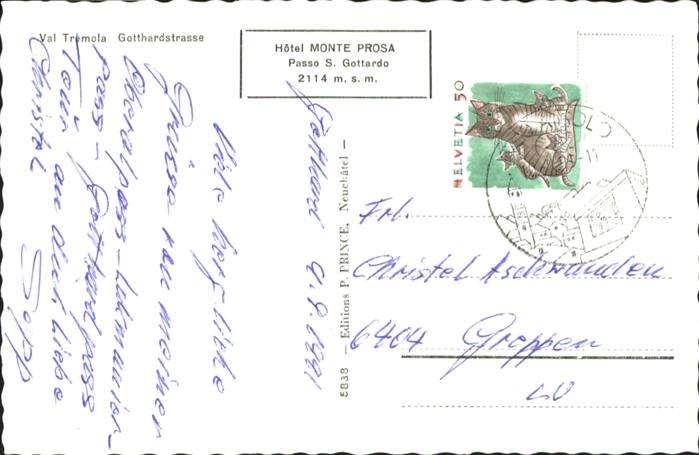 Val Tremola Gotthardstrasse
Hôtel MONTE PROSA
Passo S. Gottardo
2114 m. s. m.
HELVETIA 50
Gotthard 9.9.1991
Viele herzliche
Grüsse von meiner
Oberalppass-Lukmanier-
pass-Gotthardpass
Tour an dich liebe
Christel
Sepp
5838 — Editions P. PRINCE, Neuchâtel —
Frl.
Christel Aschwanden
6404 Greppen
LU